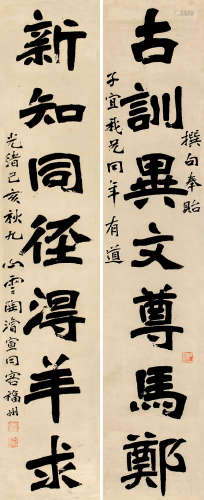 古訓異文尊馬鄭
撰句奉貽
子宜我兄同年有道
新知同徑得羊求
光緒己亥秋九心雲陶濬宣同客福州